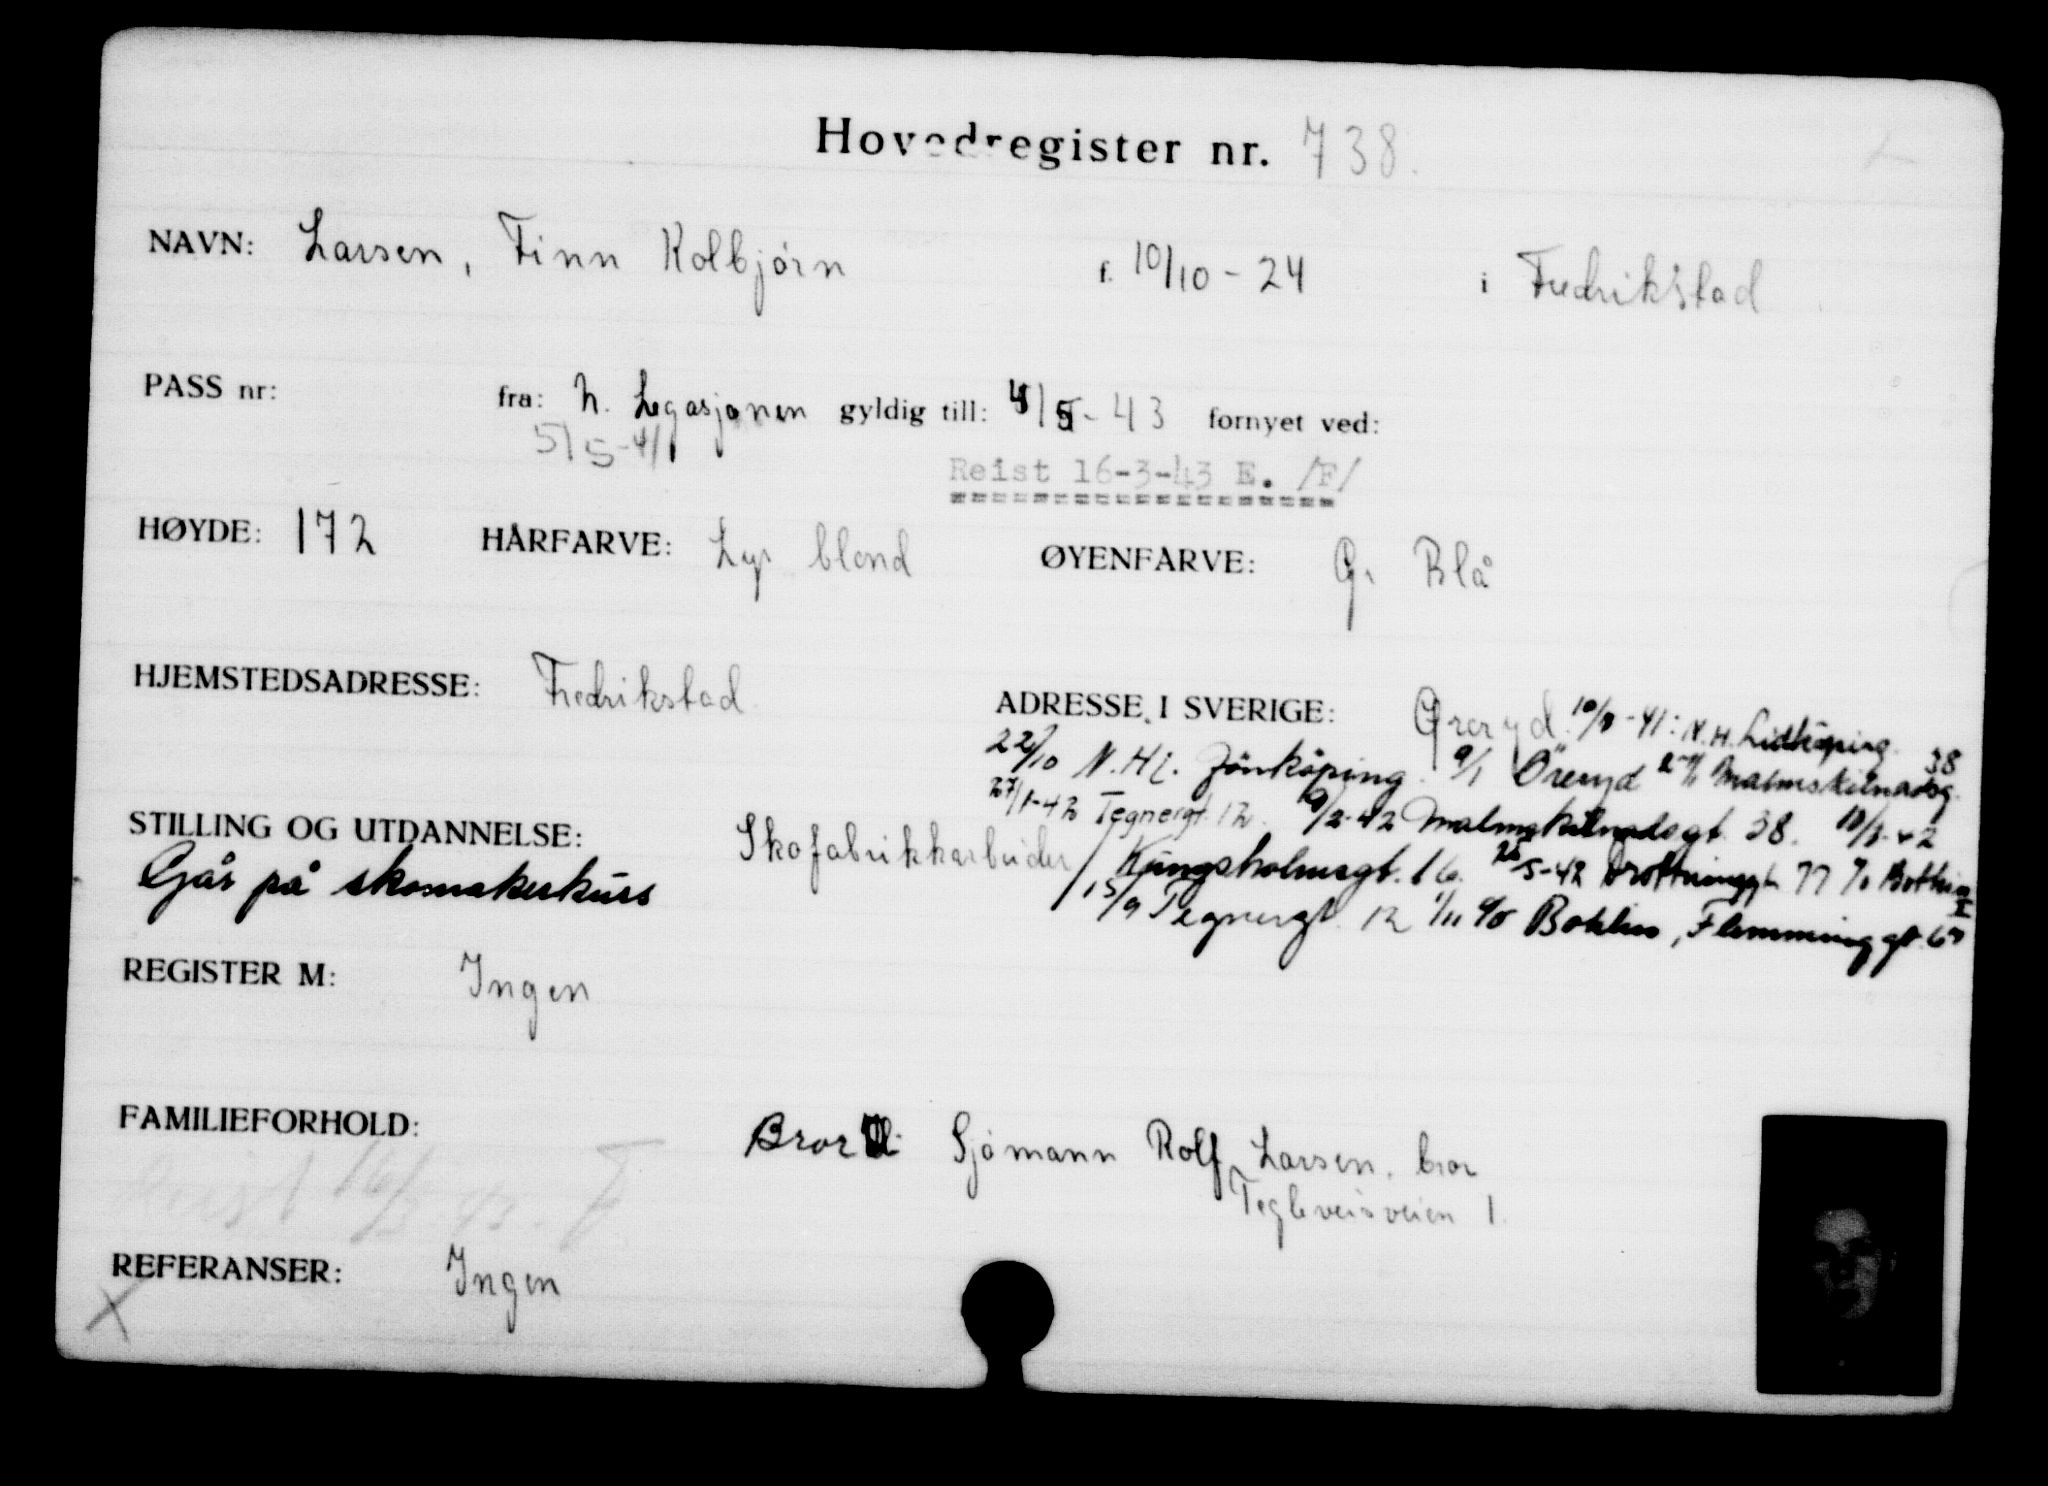 Hovedregister nr. 738.
NAVN: Larsen, Finn Kolbjørn f. 10/10 - 24 i Fredrikstad
PASS nr: fra: N. Legasjonen gyldig till: 4/5 - 43 fornyet ved:
5/5-41
Reist 16-3-43 E. /F/
HØYDE: 172 HÅRFARVE: Lys blond ØYENFARVE: G. Blå
HJEMSTEDSADRESSE: Fredrikstad ADRESSE I SVERIGE: -41: N.H. Lidköping.
22/10 N.H. Jönköping. 9/1 Öreryd Malmskilnadsg. 38
27/1-42 Tegnergt. 12. 9/2-42 Malmskilnadsgt. 38.
STILLING OG UTDANNELSE: Skofabrikkarbeider / Kungsholmsgt. 16. 26/5-42 Drottninggt. 77
Går på skomakerkurs
15/9 Tegnergt. 12 1/11 c/o Bohlin, Flemminggt. 67
REGISTER M: Ingen
FAMILIEFORHOLD: Bror: Sjømann Rolf Larsen, bror
Tegleveisveien 1.
Reist 16/3-43. F
REFERANSER: Ingen
X